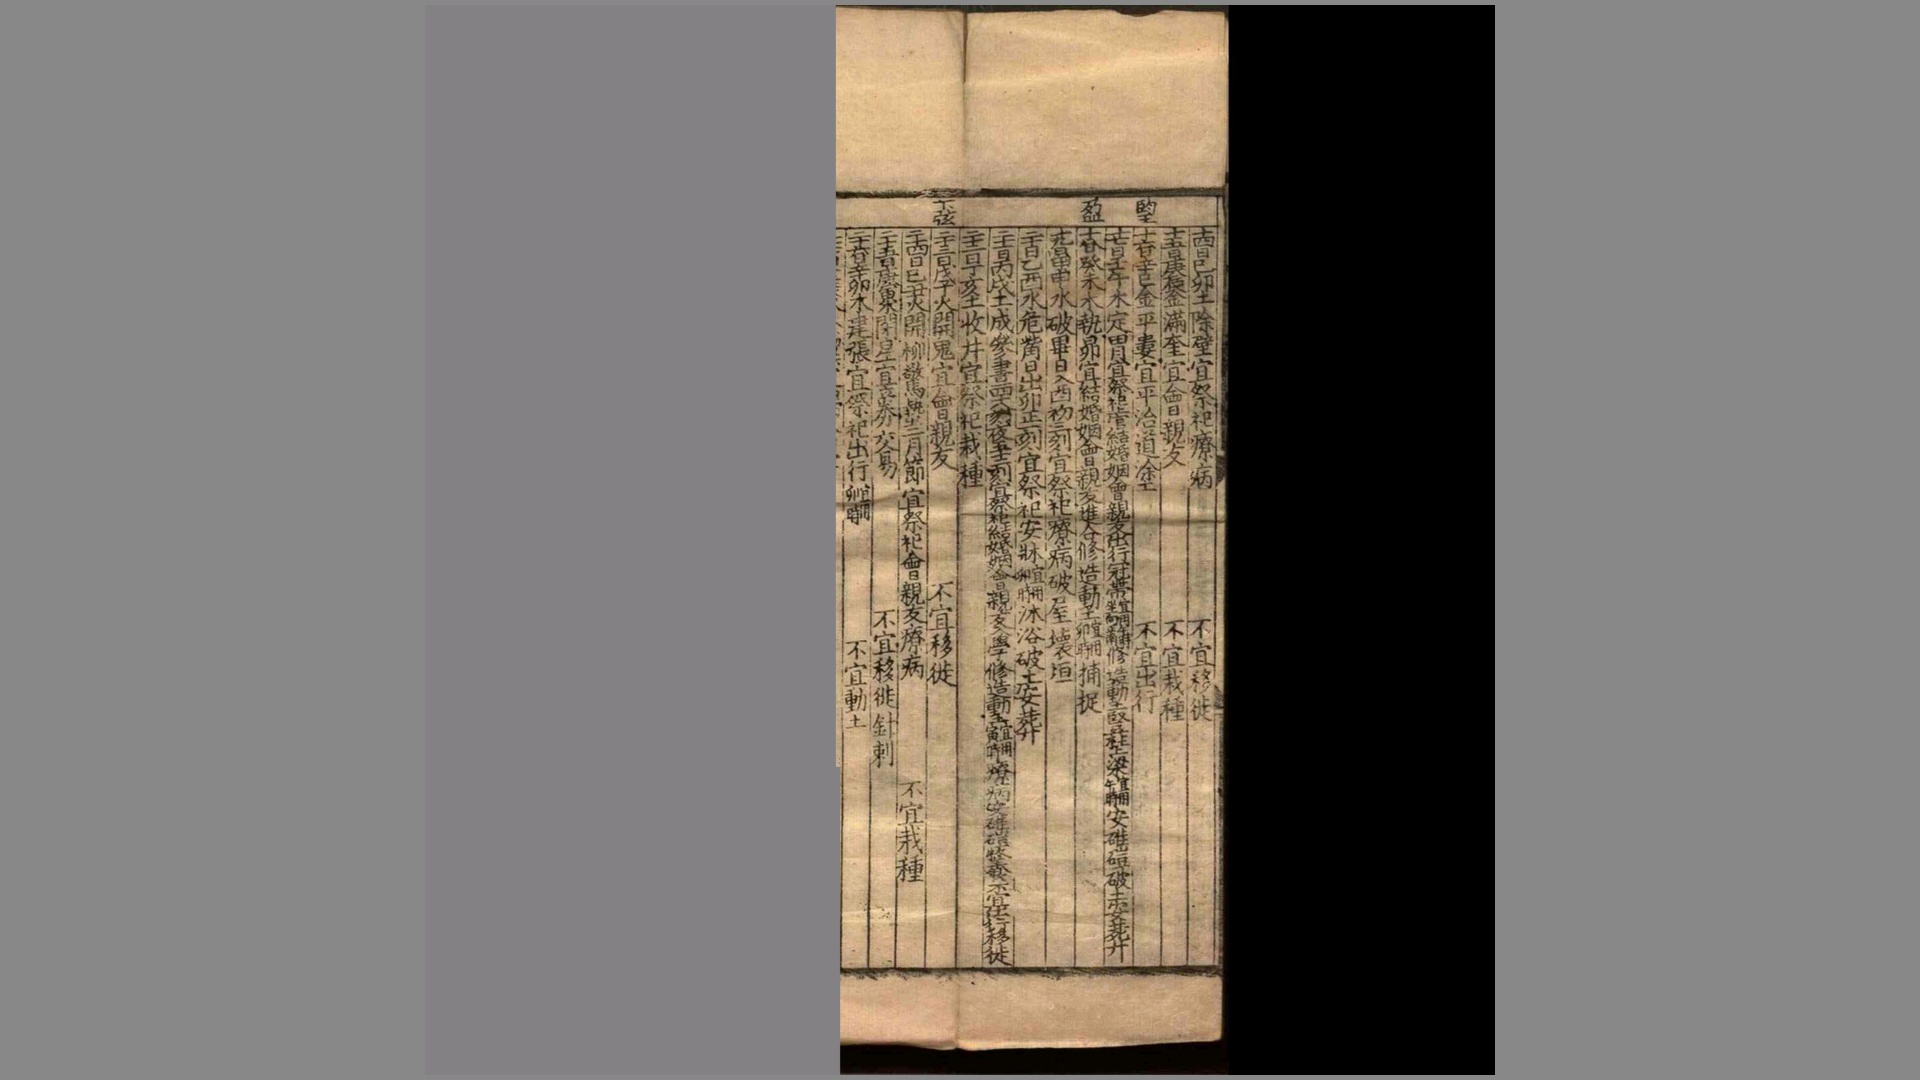 望
盈
下弦
十四日己卯土除壁宜祭祀療病 不宜移徙
十五日庚辰金滿奎宜會親友 不宜栽種
十六日辛巳金平婁宜平治道塗 不宜出行
十七日壬午木定胃宜祭祀 結婚姻會親友出行冠帶 修造動土竪柱上梁宜用午時安碓磑破土安葬
十八日癸未木執昴宜結婚姻會親友進人口修造動土宜用卯時捕捉
十九日甲申水破畢日入酉初三刻宜祭祀療病破屋壞垣
二十日乙酉水危觜日出卯正 刻宜祭祀安牀宜用卯時沐浴破土安葬
二十一日丙戌土成參晝四十 刻夜五十 刻宜祭祀結婚姻會親友入學修造動土宜用寅時療病安碓磑 不宜出行移徙
二十二日丁亥土收井宜祭祀栽種
二十三日戊子火開鬼宜會親友 不宜移徙
二十四日己丑火開柳驚蟄二月節宜祭祀會親友療病 不宜栽種
二十五日庚寅木閉星宜立券交易 不宜移徙針刺
二十六日辛卯木建張宜祭祀出行宜用卯時 不宜動土